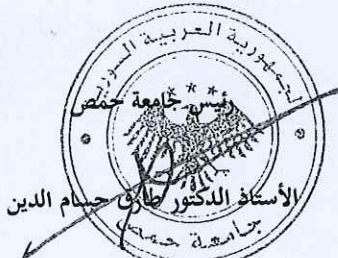 الجمهورية العربية السورية
رئيس جامعة حمص
الأستاذ الدكتور طارق حسام الدين
جامعة حمص